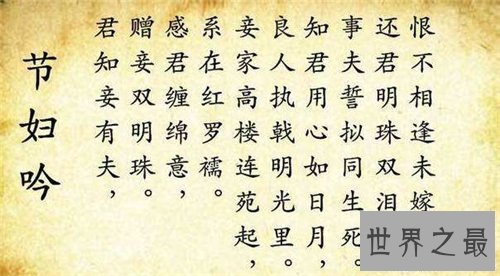 节妇吟
君知妾有夫，
赠妾双明珠。
感君缠绵意，
系在红罗襦。
妾家高楼连苑起，
良人执戟明光里。
知君用心如日月，
事夫誓拟同生死。
还君明珠双泪
恨不相逢未嫁
世界之最